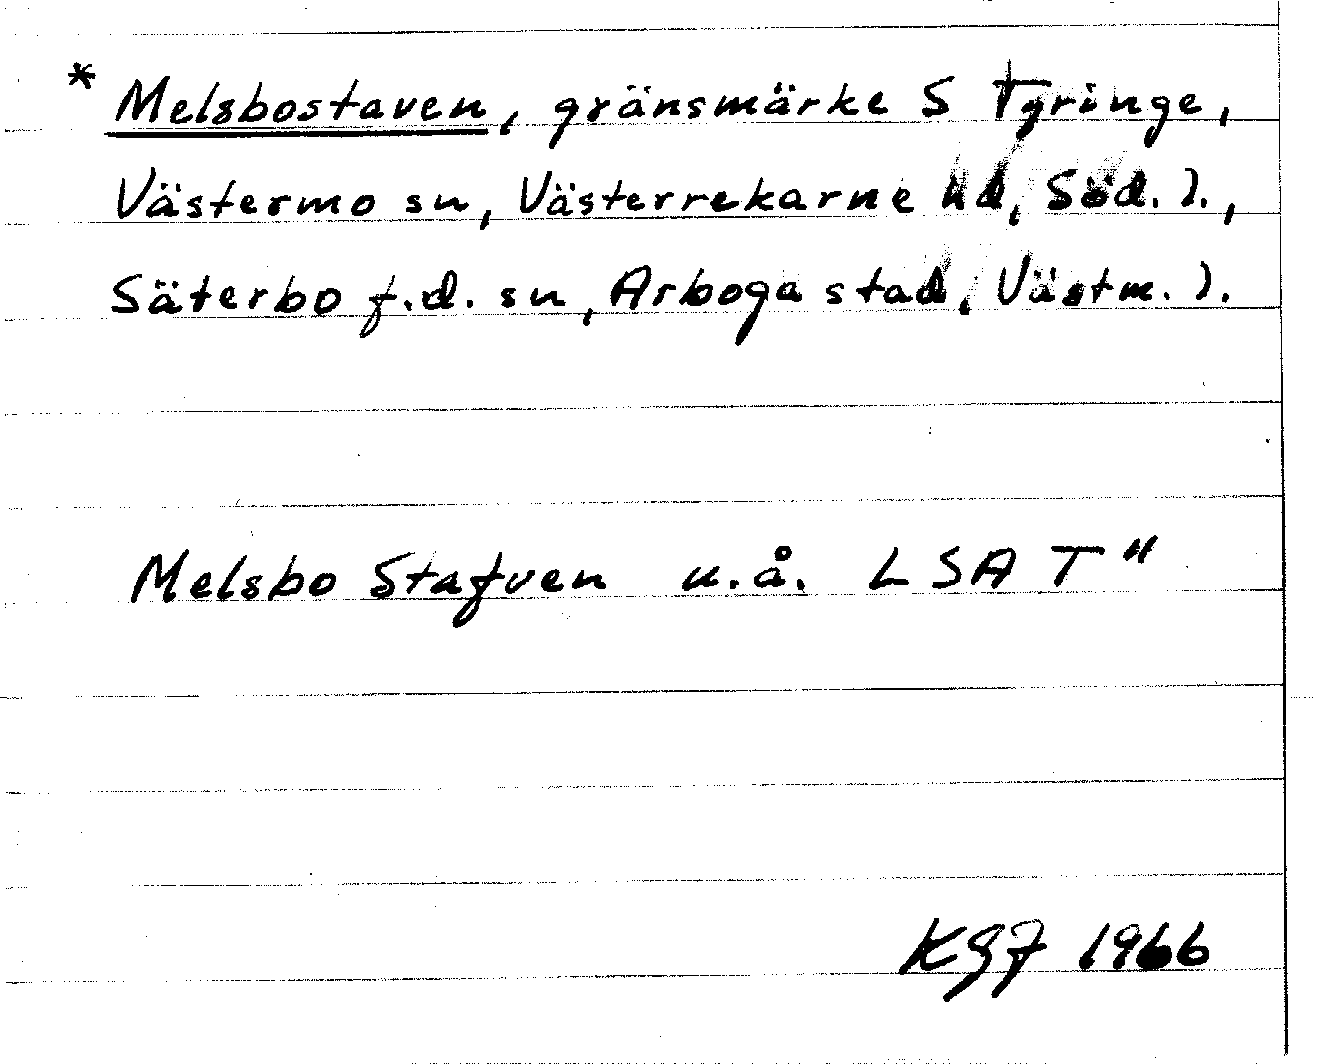 * Melsbostaven, gränsmärke S Tyringe,
Västermo sn, Västerrekarne hd, Söd. l.,
Säterbo f.d. sn, Arboga stad, Västm. l.
Melsbo Stafven u.å. LSA T"
KGJ 1966